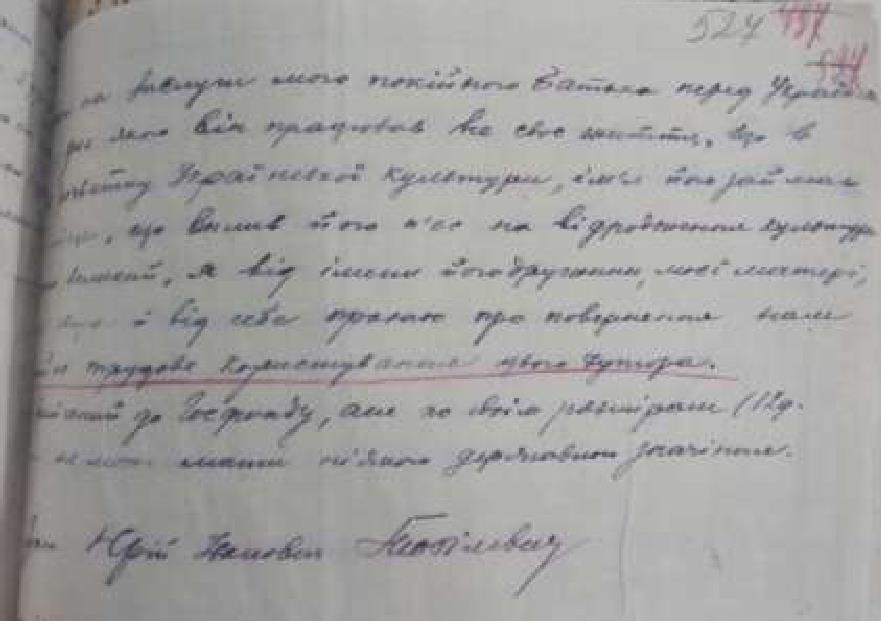 527 437
на заслуги мого покійного Батька перед Україн
для якого він працював все своє життя, що в
Української культури, ім'я його займає
що вплив його п'єс на відродження культури
я від імени його дружини, моєї матері,
і від себе прохаю про повернення нам
трудове користування цього хутора.
до Госфонду, але по своїм розмірам (12д.
може мати ніякого державного значіння.
Юрій Іванович Тобілевич